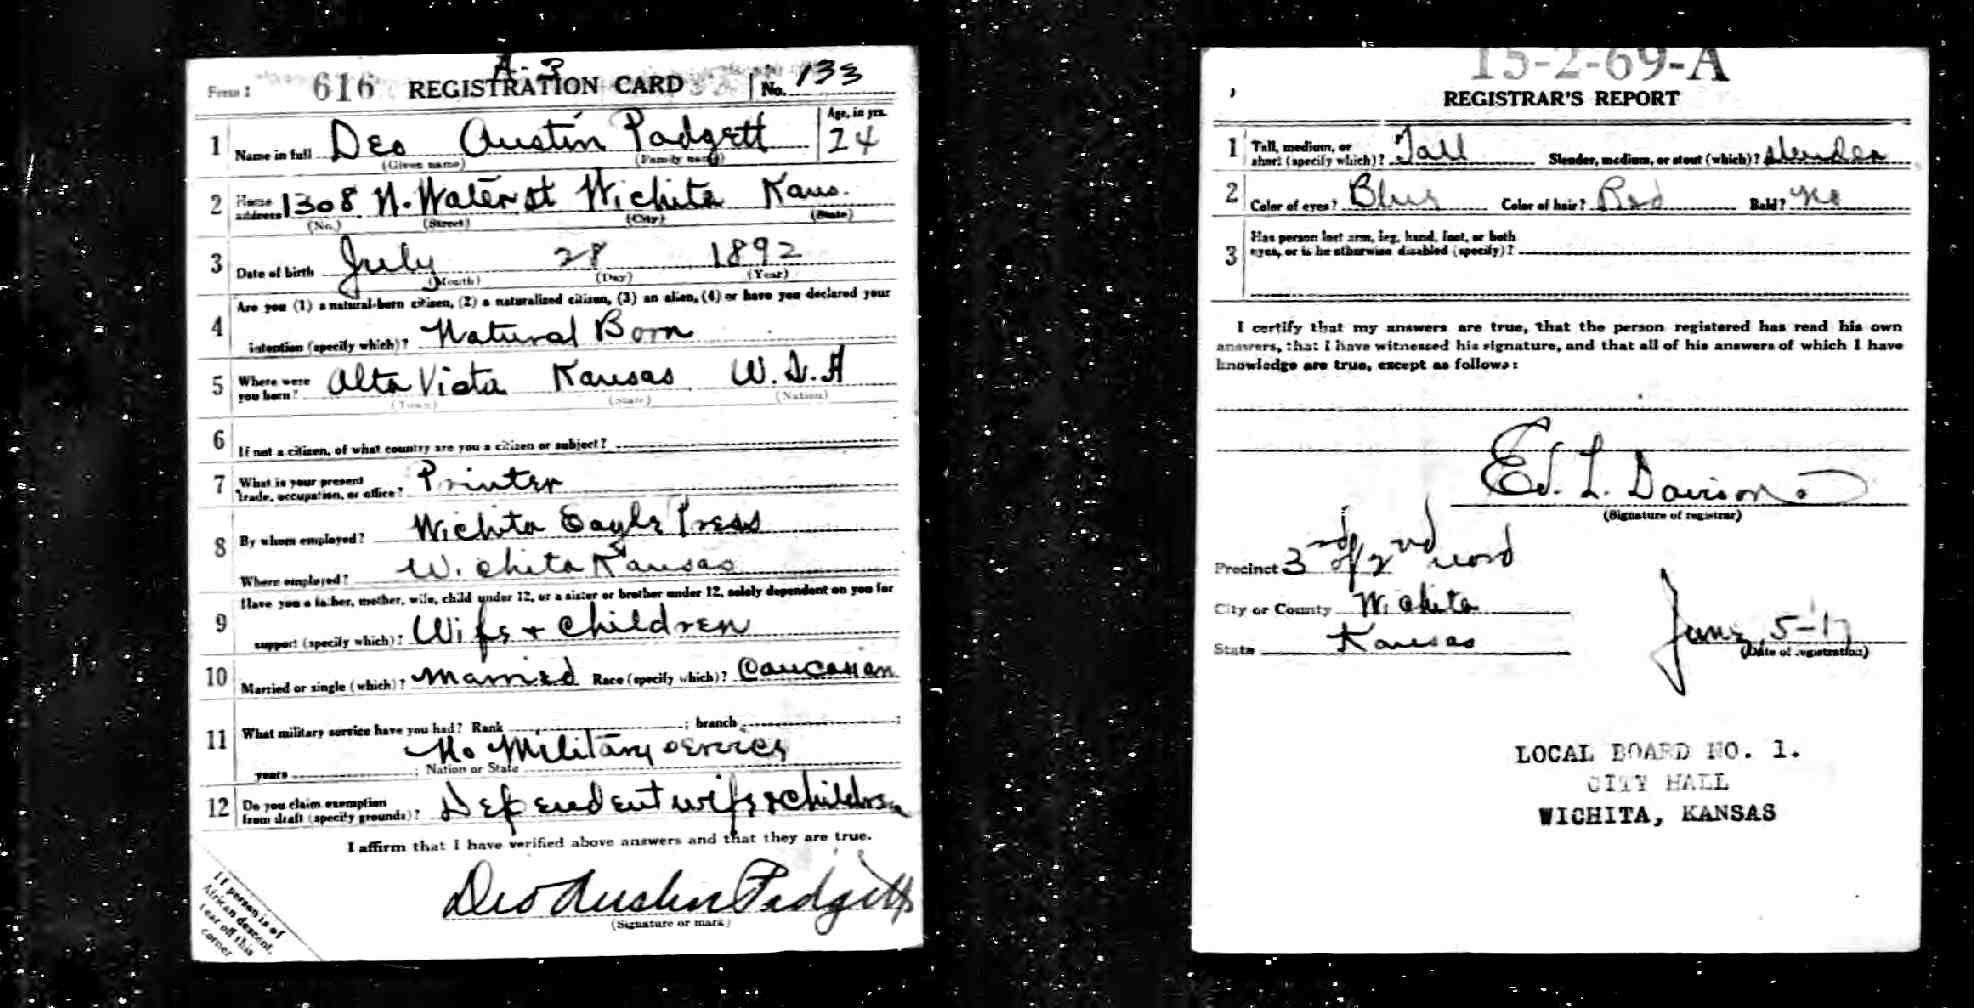 A-3
Form 1 616 REGISTRATION CARD No. 133
1 Name in full Deo Austin Padgett Age, in yrs. 24
(Given name) (Family name)
2 Home address 1308 N. Water st Wichita Kans.
(No.) (Street) (City) (State)
3 Date of birth July 28 1892
(Month) (Day) (Year)
4 Are you (1) a natural-born citizen, (2) a naturalized citizen, (3) an alien, (4) or have you declared your
intention (specify which)? Natural Born
5 Where were you born? Alta Vista Kansas U.S.A
(Town) (State) (Nation)
6 If not a citizen, of what country are you a citizen or subject?
7 What is your present
trade, occupation, or office? Printer
8 By whom employed? Wichita Eagle Press
Where employed? Wichita Kansas
9 Have you a father, mother, wife, child under 12, or a sister or brother under 12, solely dependent on you for
support (specify which)? Wife + Children
10 Married or single (which)? Married Race (specify which)? Caucasian
11 What military service have you had? Rank ; branch ;
No Military service
years ; Nation or State
12 Do you claim exemption
from draft (specify grounds)? Dependent wife & children
I affirm that I have verified above answers and that they are true.
Deo Austin Padgett
(Signature or mark)
If person is of
African descent,
tear off this
corner
15-2-69-A
REGISTRAR'S REPORT
1 Tall, medium, or
short (specify which)? Tall Slender, medium, or stout (which)? slender
2 Color of eyes? Blue Color of hair? Red Bald? No
3 Has person lost arm, leg, hand, foot, or both
eyes, or is he otherwise disabled (specify)?
I certify that my answers are true, that the person registered has read his own
answers, that I have witnessed his signature, and that all of his answers of which I have
knowledge are true, except as follows:
Ed. L. Davison
(Signature of registrar)
Precinct 3rd of 2nd word
City or County Wichita
State Kansas
June 5-17
(Date of registration)
LOCAL BOARD NO. 1.
CITY HALL
WICHITA, KANSAS